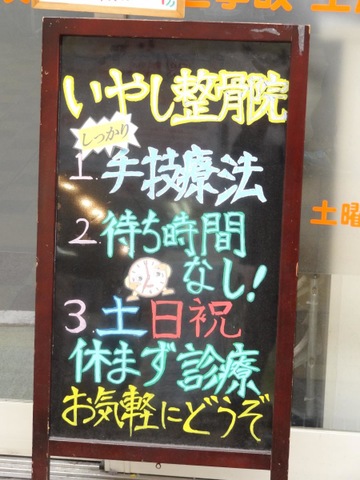 いやし整骨院
しっかり
1. 手技療法
2. 待ち時間
なし!
3. 土日祝
休まず診療
お気軽にどうぞ
土曜